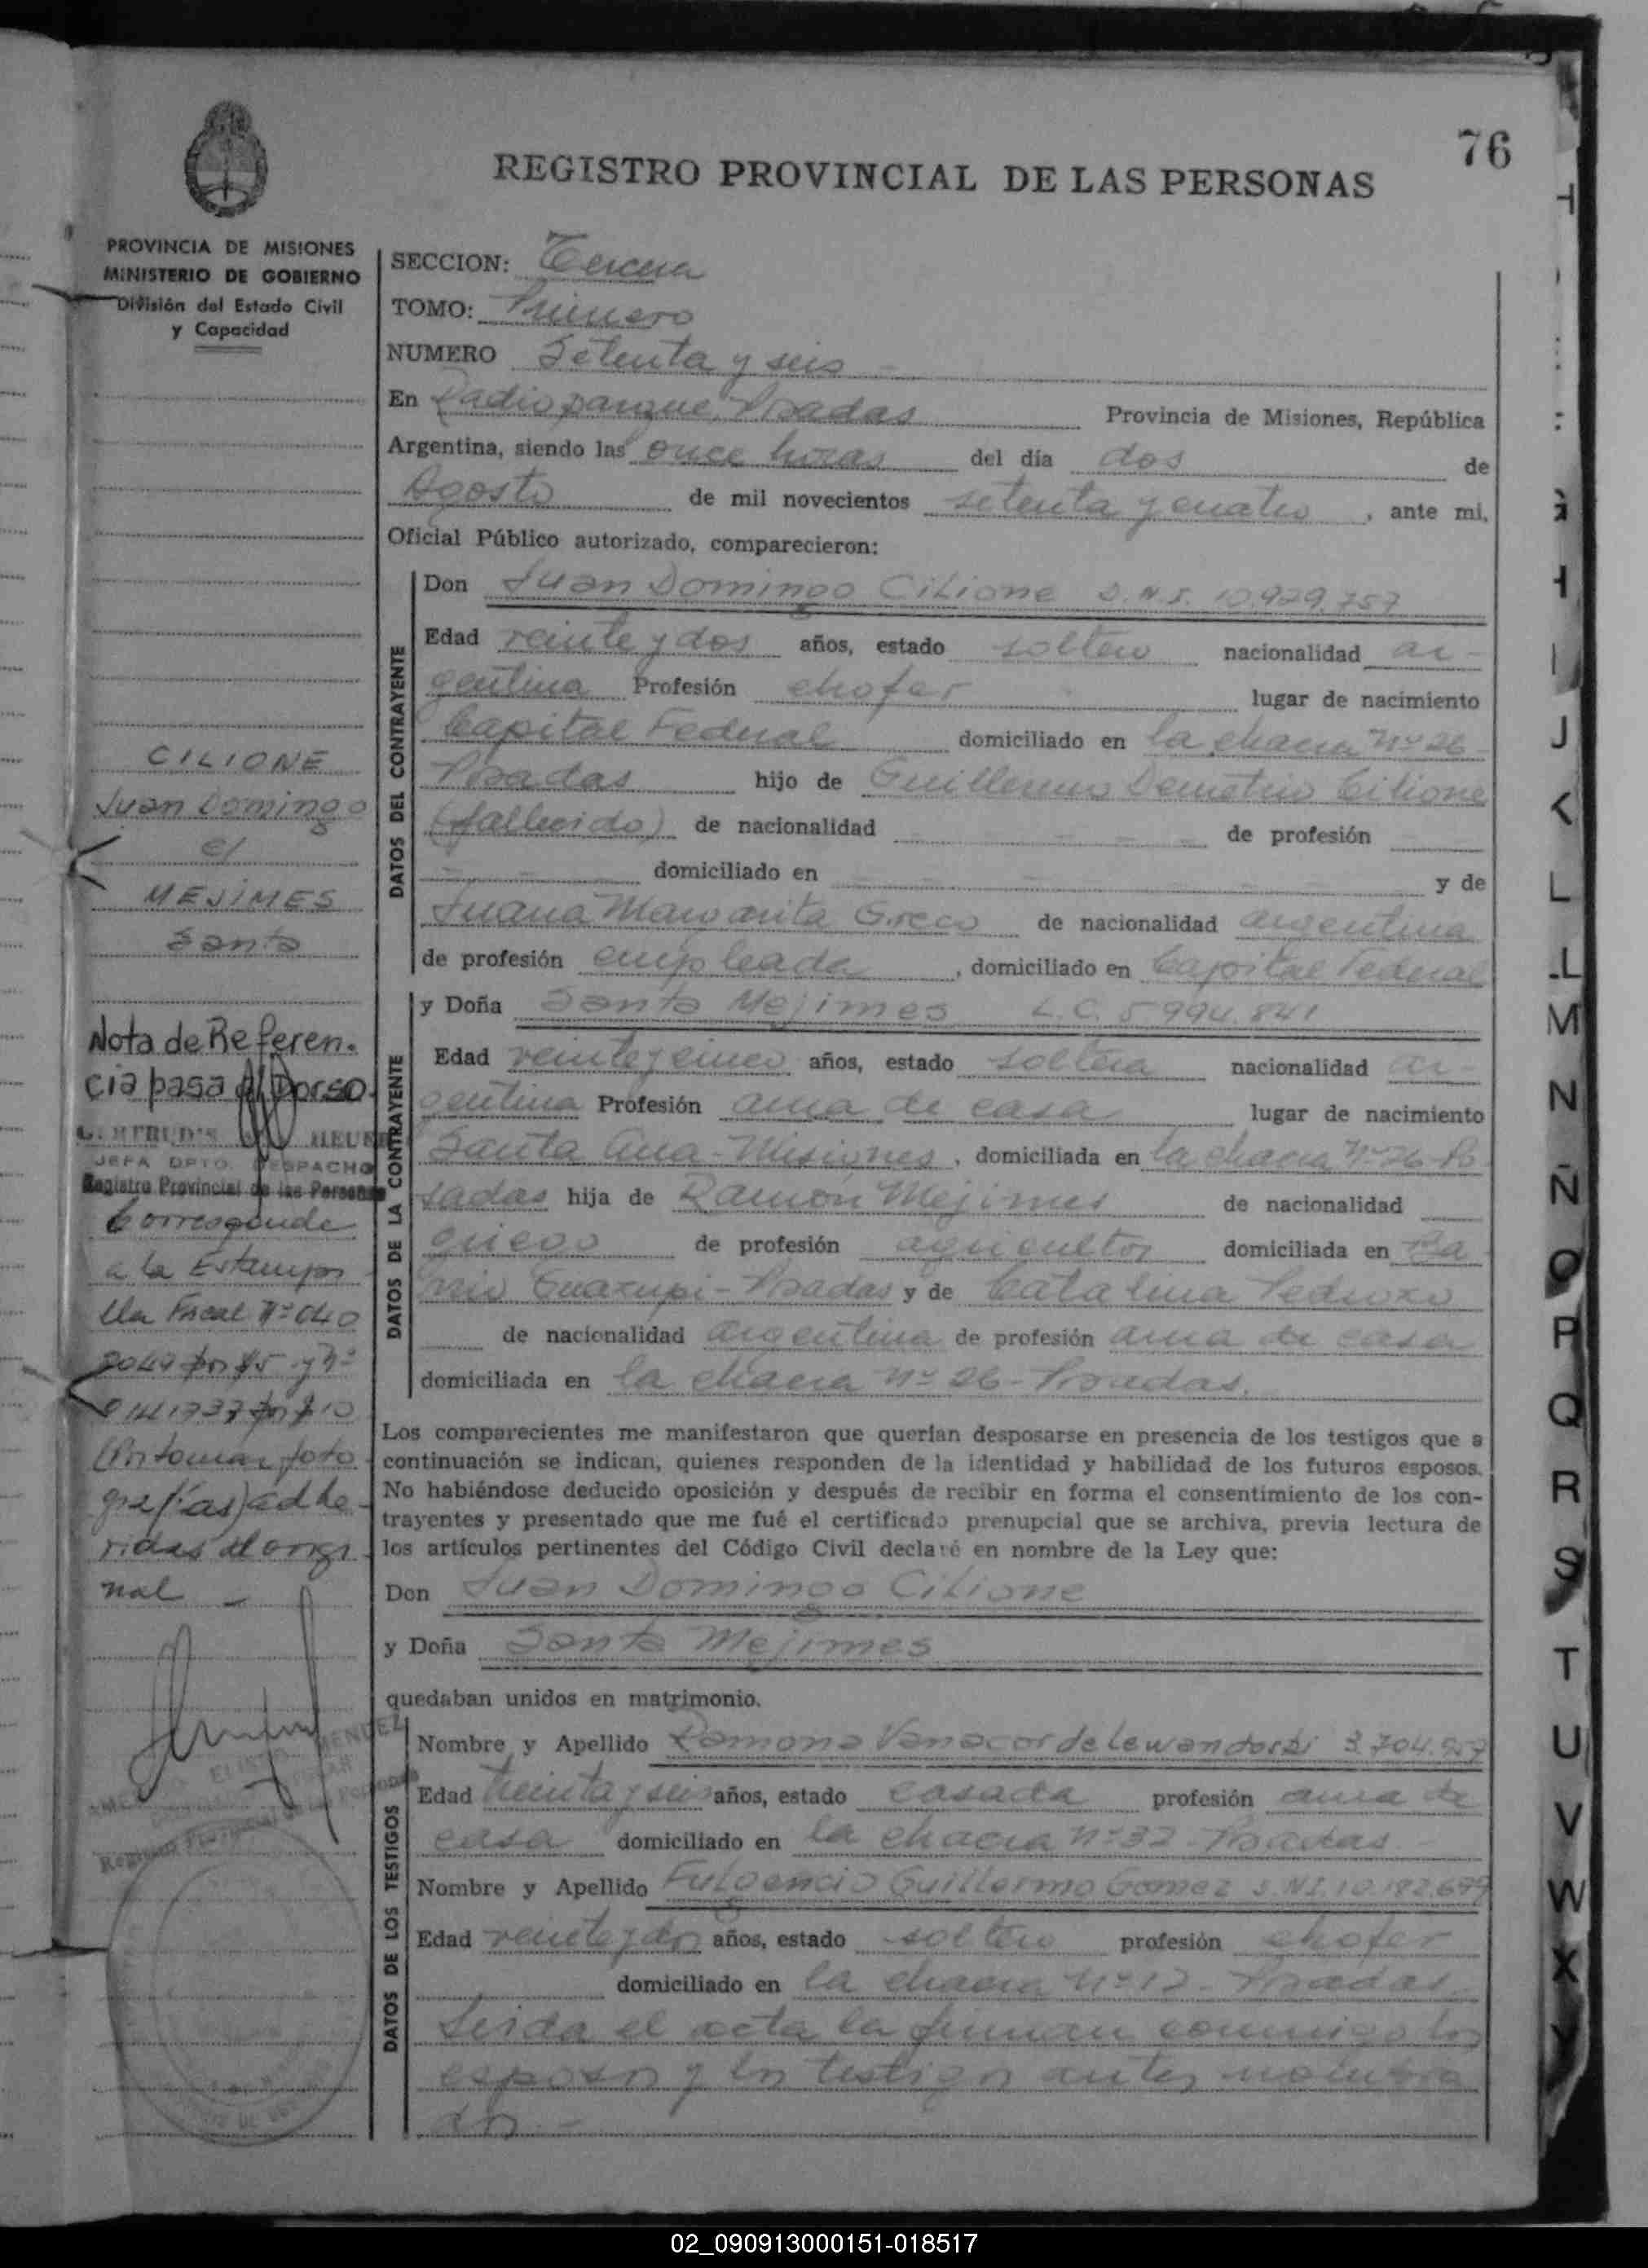 76
REGISTRO PROVINCIAL DE LAS PERSONAS
PROVINCIA DE MISIONES
MINISTERIO DE GOBIERNO
División del Estado Civil
y Capacidad
SECCION: Tercera
TOMO: Primero
NUMERO Setenta y seis -
En Radioparque Posadas Provincia de Misiones, República
Argentina, siendo las once horas del día dos de
Agosto de mil novecientos setenta y cuatro, ante mi,
Oficial Público autorizado, comparecieron:
DATOS DEL CONTRAYENTE
Don Juan Domingo Cilione D.N.I. 10.929.757
Edad veinte y dos años, estado soltero nacionalidad ar-
gentina Profesión chofer lugar de nacimiento
Capital Federal domiciliado en la chacra Nº 26-
Posadas hijo de Guillermo Demetrio Cilione
(fallecido) de nacionalidad - - - - de profesión
- - - domiciliado en - - - - - y de
Juana Margarita Greco de nacionalidad argentina
de profesión empleada, domiciliado en Capital Federal
DATOS DE LA CONTRAYENTE
y Doña Santa Mejimes L.C. 5994.841
Edad veinte y cinco años, estado soltera nacionalidad ar-
gentina Profesión ama de casa lugar de nacimiento
Santa Ana-Misiones, domiciliada en la chacra Nº 26-Po
sadas hija de Ramón Mejimes de nacionalidad
griego de profesión agricultor domiciliada en Ba
rrio Guazupi-Posadas y de Catalina Pedrozo
de nacionalidad argentina de profesión ama de casa
domiciliada en la chacra Nº 26-Posadas.
Los comparecientes me manifestaron que querían desposarse en presencia de los testigos que a
continuación se indican, quienes responden de la identidad y habilidad de los futuros esposos.
No habiéndose deducido oposición y después de recibir en forma el consentimiento de los con-
trayentes y presentado que me fué el certificado prenupcial que se archiva, previa lectura de
los artículos pertinentes del Código Civil declaré en nombre de la Ley que:
Don Juan Domingo Cilione
y Doña Santa Mejimes
quedaban unidos en matrimonio.
DATOS DE LOS TESTIGOS
Nombre y Apellido Ramona Vanacor de Lewandoski 3.704.957
Edad treinta y seis años, estado casada profesión ama de
casa domiciliado en la chacra Nº 32-Posadas.
Nombre y Apellido Fulgencio Guillermo Gomez D.N.I. 10.182.679
Edad veinte y dos años, estado soltero profesión chofer
domiciliado en la chacra Nº 12-Posadas.
Leida el acta la firman conmigo los
esposos y los testigos antes nombra
dos.-
CILIONE
Juan Domingo
c/
MEJIMES
Santa
Nota de Referen-
cia pasa al Dorso.
JEFA DPTO. DESPACHO
Registro Provincial de las Personas
Corresponde
a la Estampi
lla Fiscal Nº 040
2049 por $5 y Nº
0141737 por $10
(Por tomar foto
grafías) adhe-
ridas al origi-
nal -
02_090913000151-018517
H
I
J
K
L
LL
M
N
Ñ
O
P
Q
R
S
T
U
V
W
X
Y